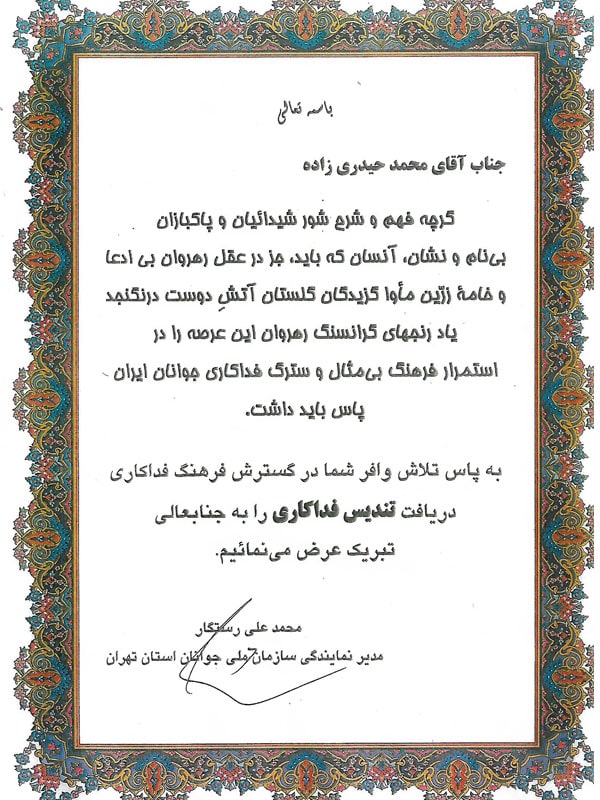 باسمه تعالی
جناب آقای محمد حیدری زاده
گرچه فهم و شرح شور شیدائیان و پاکبازان
بی‌نام و نشان، آنسان که باید، جز در عقل رهروان بی ادعا
و خامهٔ زرّین مأوا گزیدگان گلستان آتشِ دوست درنگنجد
یاد رنجهای گرانسنگ رهروان این عرصه را در
استمرار فرهنگ بی‌مثال و سترگ فداکاری جوانان ایران
پاس باید داشت.
به پاس تلاش وافر شما در گسترش فرهنگ فداکاری
دریافت تندیس فداکاری را به جنابعالی
تبریک عرض می‌نمائیم.
محمد علی رستگار
مدیر نمایندگی سازمان ملی جوانان استان تهران